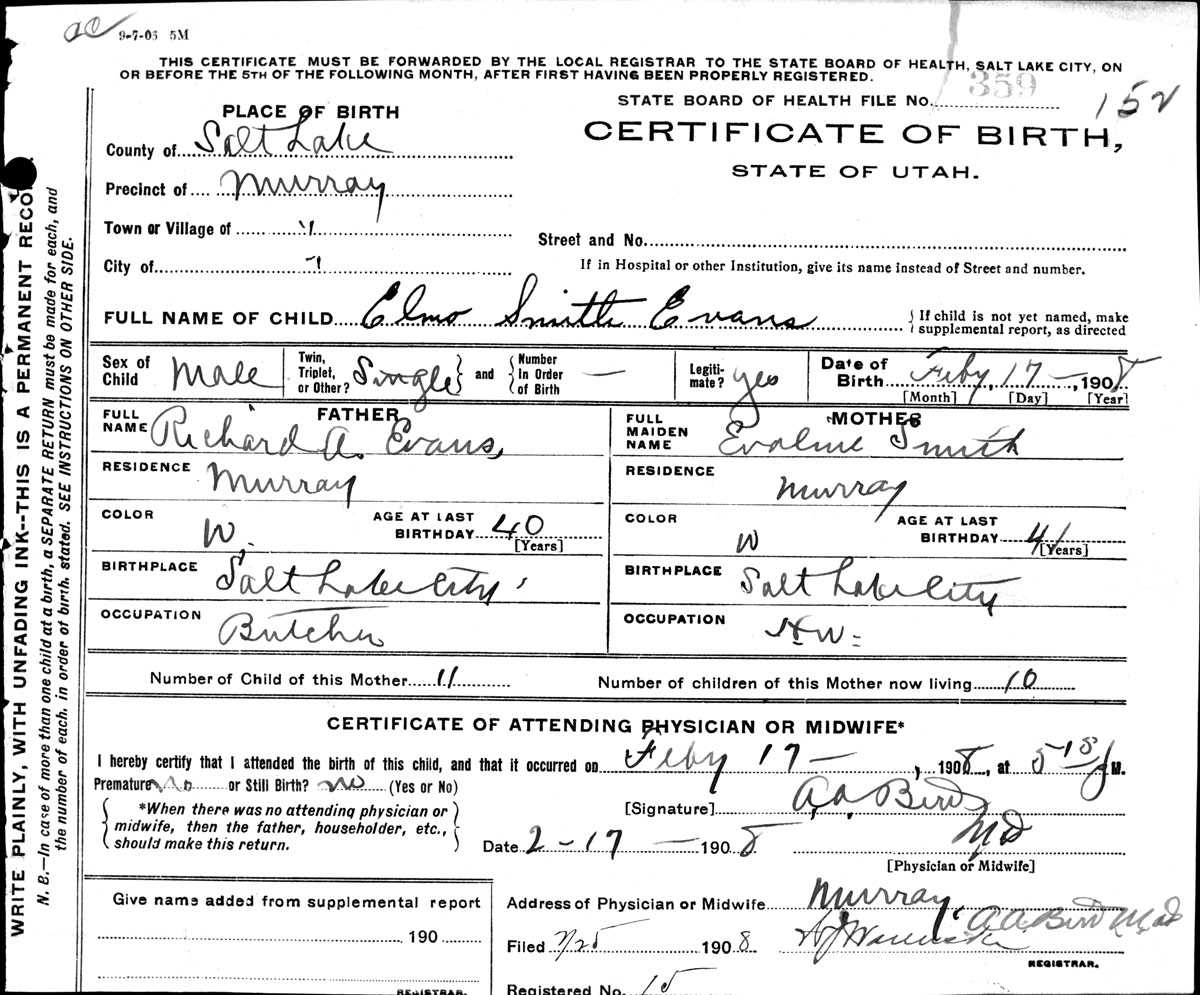 9-7-06 5M
THIS CERTIFICATE MUST BE FORWARDED BY THE LOCAL REGISTRAR TO THE STATE BOARD OF HEALTH, SALT LAKE CITY, ON
OR BEFORE THE 5TH OF THE FOLLOWING MONTH, AFTER FIRST HAVING BEEN PROPERLY REGISTERED.
STATE BOARD OF HEALTH FILE No. 359
152
CERTIFICATE OF BIRTH,
STATE OF UTAH.
PLACE OF BIRTH
County of Salt Lake
Precinct of Murray
Town or Village of "
City of "
Street and No.
If in Hospital or other Institution, give its name instead of Street and number.
FULL NAME OF CHILD Elmo Smith Evans
{ If child is not yet named, make
supplemental report, as directed
Sex of Child Male
Twin, Triplet, or Other? Single } and { Number In Order of Birth —
Legiti-mate? yes
Date of Birth Feby, 17 —, 1908
[Month] [Day] [Year]
FATHER
FULL NAME Richard A. Evans
RESIDENCE Murray
COLOR W.
AGE AT LAST BIRTHDAY 40
[Years]
BIRTHPLACE Salt Lake City
OCCUPATION Butcher
MOTHER
FULL MAIDEN NAME Evaline Smith
RESIDENCE Murray
COLOR W
AGE AT LAST BIRTHDAY 41
[Years]
BIRTHPLACE Salt Lake City
OCCUPATION H.W.
Number of Child of this Mother 11
Number of children of this Mother now living 10
CERTIFICATE OF ATTENDING PHYSICIAN OR MIDWIFE*
I hereby certify that I attended the birth of this child, and that it occurred on Feby 17 —, 1908, at 5-15 M.
Premature No or Still Birth? no (Yes or No)
{ *When there was no attending physician or
midwife, then the father, householder, etc.,
should make this return. }
[Signature] A. A. Bird
MD
Date 2-17 — 1908
[Physician or Midwife]
Give name added from supplemental report
190
REGISTRAR.
Address of Physician or Midwife Murray
A A Bird Md
Filed 1908
REGISTRAR.
Registered No. 15
WRITE PLAINLY, WITH UNFADING INK--THIS IS A PERMANENT RECO
N. B.—In case of more than one child at a birth, a SEPARATE RETURN must be made for each, and
the number of each, in order of birth, stated. SEE INSTRUCTIONS ON OTHER SIDE.